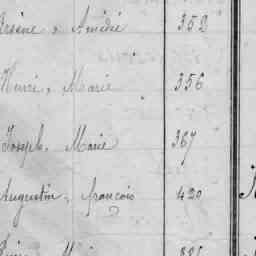 Arsène, Amédée 352
Henri, Marie 356
Joseph, Marie 367
Augustin, françois 420
Marie